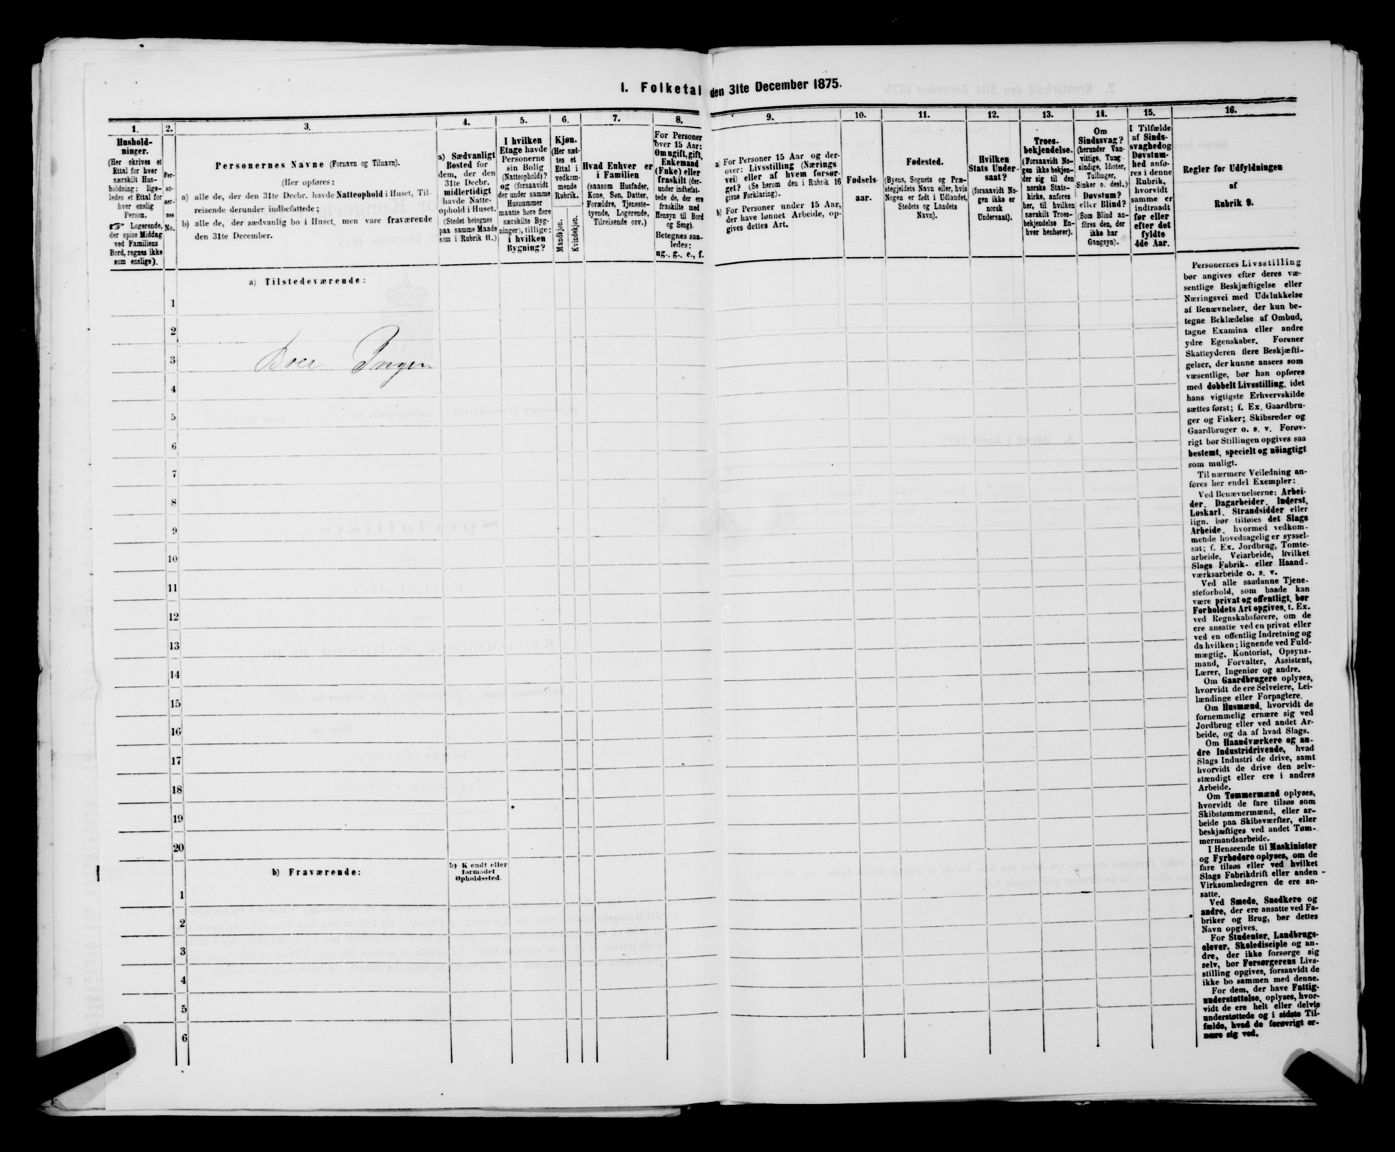 I. Folketal den 31te December 1875.
1.
Hushold-
ninger.
(Her skrives et
Ettal for hver
særskilt Hus-
holdning; lige-
ledes et Ettal for
hver enslig
Person.
☞ Logerende,
der spise Middag
ved Familiens
Bord, regnes ikke
som enslige).
2.
Per-
so-
ner-
nes
No.
3.
Personernes Navne (Fornavn og Tilnavn).
(Her opføres:
a) alle de, der den 31te Decbr. havde Natteophold i Huset, Til-
reisende derunder indbefattede;
b) alle de, der sædvanlig bo i Huset, men vare fraværende
den 31te December.
4.
a) Sædvanligt
Bosted for
dem, der den
31te Decbr.
midlertidigt
havde Natte-
ophold i Huset.
(Stedet betegnes
paa samme Maade
som i Rubrik 11.)
5.
I hvilken
Etage havde
Personerne
sin Bolig
(Natteophold?
og (forsaavidt
der under samme
Husnummer
maatte høre flere
særskilte Byg-
ninger), tillige:
i hvilken
Bygning?
6.
Kjøn.
(Her sæt-
tes et
Ettal i
vedkom-
mende
Rubrik.
Mandkjøn.
Kvindekjøn.
7.
Hvad Enhver er
i Familien
(saasom Husfader,
Kone, Søn, Datter,
Forældre, Tjeneste-
tyende, Logerende,
Tilreisende osv.)
8.
For Personer
over 15 Aar:
Om ugift, gift,
Enkemand
(Enke) eller
fraskilt (der-
under indbefat-
tede de, der ere
fraskilte med
Hensyn til Bord
og Seng).
Betegnes saa-
ledes:
ug., g., e., f.
9.
a) For Personer 15 Aar og der-
over: Livsstilling (Nærings
vei) eller af hvem forsør-
get? (Se herom den i Rubrik 16
givne Forklaring).
b) For Personer under 15 Aar,
der have lønnet Arbeide, op-
gives dettes Art.
10.
Fødsels-
aar.
11.
Fødested.
(Byens, Sognets og Præ-
stegjeldets Navn eller, hvis
Nogen er født i Udlandet,
Stedets og Landets
Navn).
12.
Hvilken
Stats Under-
saat?
(forsaavidt No-
gen ikke er
norsk
Undersaat).
13.
Troes-
bekjendelse.
(Forsaavidt No-
gen ikke bekjen-
der sig til den
norske Stats-
kirke, anføres
her, til hvilken
særskilt Troes-
bekjendelse En-
hver henhører).
14.
Om
Sindssvag?
(herunder Van-
vittige, Tung-
sindige, Idioter,
Tullinger,
Sinker o. desl.)
Døvstum?
eller Blind?
(Som Blind an-
føres den, der
ikke har
Gangsyn).
15.
I Tilfælde
af Sinds-
svaghed og
Døvstum-
hed anfø-
res i denne
Rubrik,
hvorvidt
samme er
indtraadt
før eller
efter det
fyldte
4de Aar.
16.
Regler for Udfyldningen
af
Rubrik 9.
a) Tilstedeværende:
1
2
3
Ingen
4
5
6
7
8
9
10
11
12
13
14
15
16
17
18
19
20
b) Fraværende:
b) Kjendt eller
formodet
Opholdssted.
1
2
3
4
5
6
Personernes Livsstilling
bør angives efter deres væ-
sentlige Beskjæftigelse eller
Næringsvei med Udelukkelse
af Benævnelser, der kun be-
tegne Beklædelse af Ombud,
tagne Examina eller andre
ydre Egenskaber. Forener
Skatteyderen flere Beskjæfti-
gelser, der kunne ansees som
væsentlige, bør han opføres
med dobbelt Livsstilling, idet
hans vigtigste Erhvervskilde
sættes først; f. Ex. Gaardbru-
ger og Fisker; Skibsreder og
Gaardbruger o. s. v. Forøv-
rigt bør Stillingen opgives saa
bestemt, specielt og nöiagtigt
som muligt.
Til nærmere Veiledning an-
føres her endel Exempler:
Ved Benævnelserne: Arbei-
der, Dagarbeider, Inderst,
Løskarl, Strandsidder eller
lign. bør tilføies det Slags
Arbeide, hvormed vedkom-
mende hovedsagelig er syssel-
sat; f. Ex. Jordbrug, Tomte-
arbeide, Veiarbeide, hvilket
Slags Fabrik- eller Haand-
værksarbeide o. s. v.
Ved alle saadanne Tjene-
steforhold, som baade kan
være privat og offentligt, bør
Forholdets Art opgives, t. Ex.
ved Regnskabsførere, om de
ere ansatte ved en privat eller
ved en offentlig Indretning og
da hvilken; lignende ved Fuld-
mægtig, Kontorist, Opsyns-
mand, Forvalter, Assistent,
Lærer, Ingeniør og andre.
Om Gaardbrugere oplyses,
hvorvidt de ere Selveiere, Lei-
lændinge eller Forpagtere.
Om Husmænd, hvorvidt de
fornemmelig ernære sig ved
Jordbrug eller ved andet Ar-
beide, og da af hvad Slags.
Om Haandværkere og an-
dre Industridrivende, hvad
Slags Industri de drive, samt
hvorvidt de drive den selv-
stændigt eller ere i andres
Arbeide.
Om Tømmermænd oplyses,
hvorvidt de fare tilsøs som
Skibstømmermænd, eller ar-
beide paa Skibsværfter, eller
beskjæftiges ved andet Tøm-
mermandsarbeide.
I Henseende til Maskinister
og Fyrbødere oplyses, om de
fare tilsøs eller ved hvilket
Slags Fabrikdrift eller anden
Virksomhedsgren de ere an-
satte.
Ved Smede, Snedkere og
andre, der ere ansatte ved Fa-
briker og Brug, bør dettes
Navn opgives.
For Studenter, Landbrugs-
elever, Skoledisciple og an-
dre, der ikke forsørge sig
selv, bør Forsørgerens Livs-
stilling opgives, forsaavidt de
ikke bo sammen med denne.
For dem, der have Fattig-
understøttelse, oplyses, hvor-
vidt de ere helt eller delvis
understøttede og i sidste Til-
fælde, hvad de forøvrigt er-
nære sig ved.